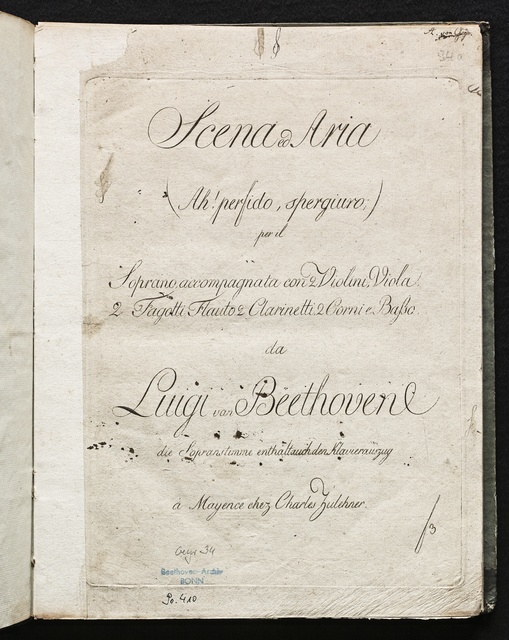 94a
8
Scena ed Aria
(Ah! perfido, spergiuro;)
per il
Soprano, accompagnata con 2 Violini, Viola
2 Fagotti Flauto 2 Clarinetti, 2 Corni e Baßo.
da
Luigi van Beethoven
die Sopranstimme enthält auch den Klavierauszug
à Mayence chez Charles Zulehner.
3
34
Beethoven-Archiv
BONN